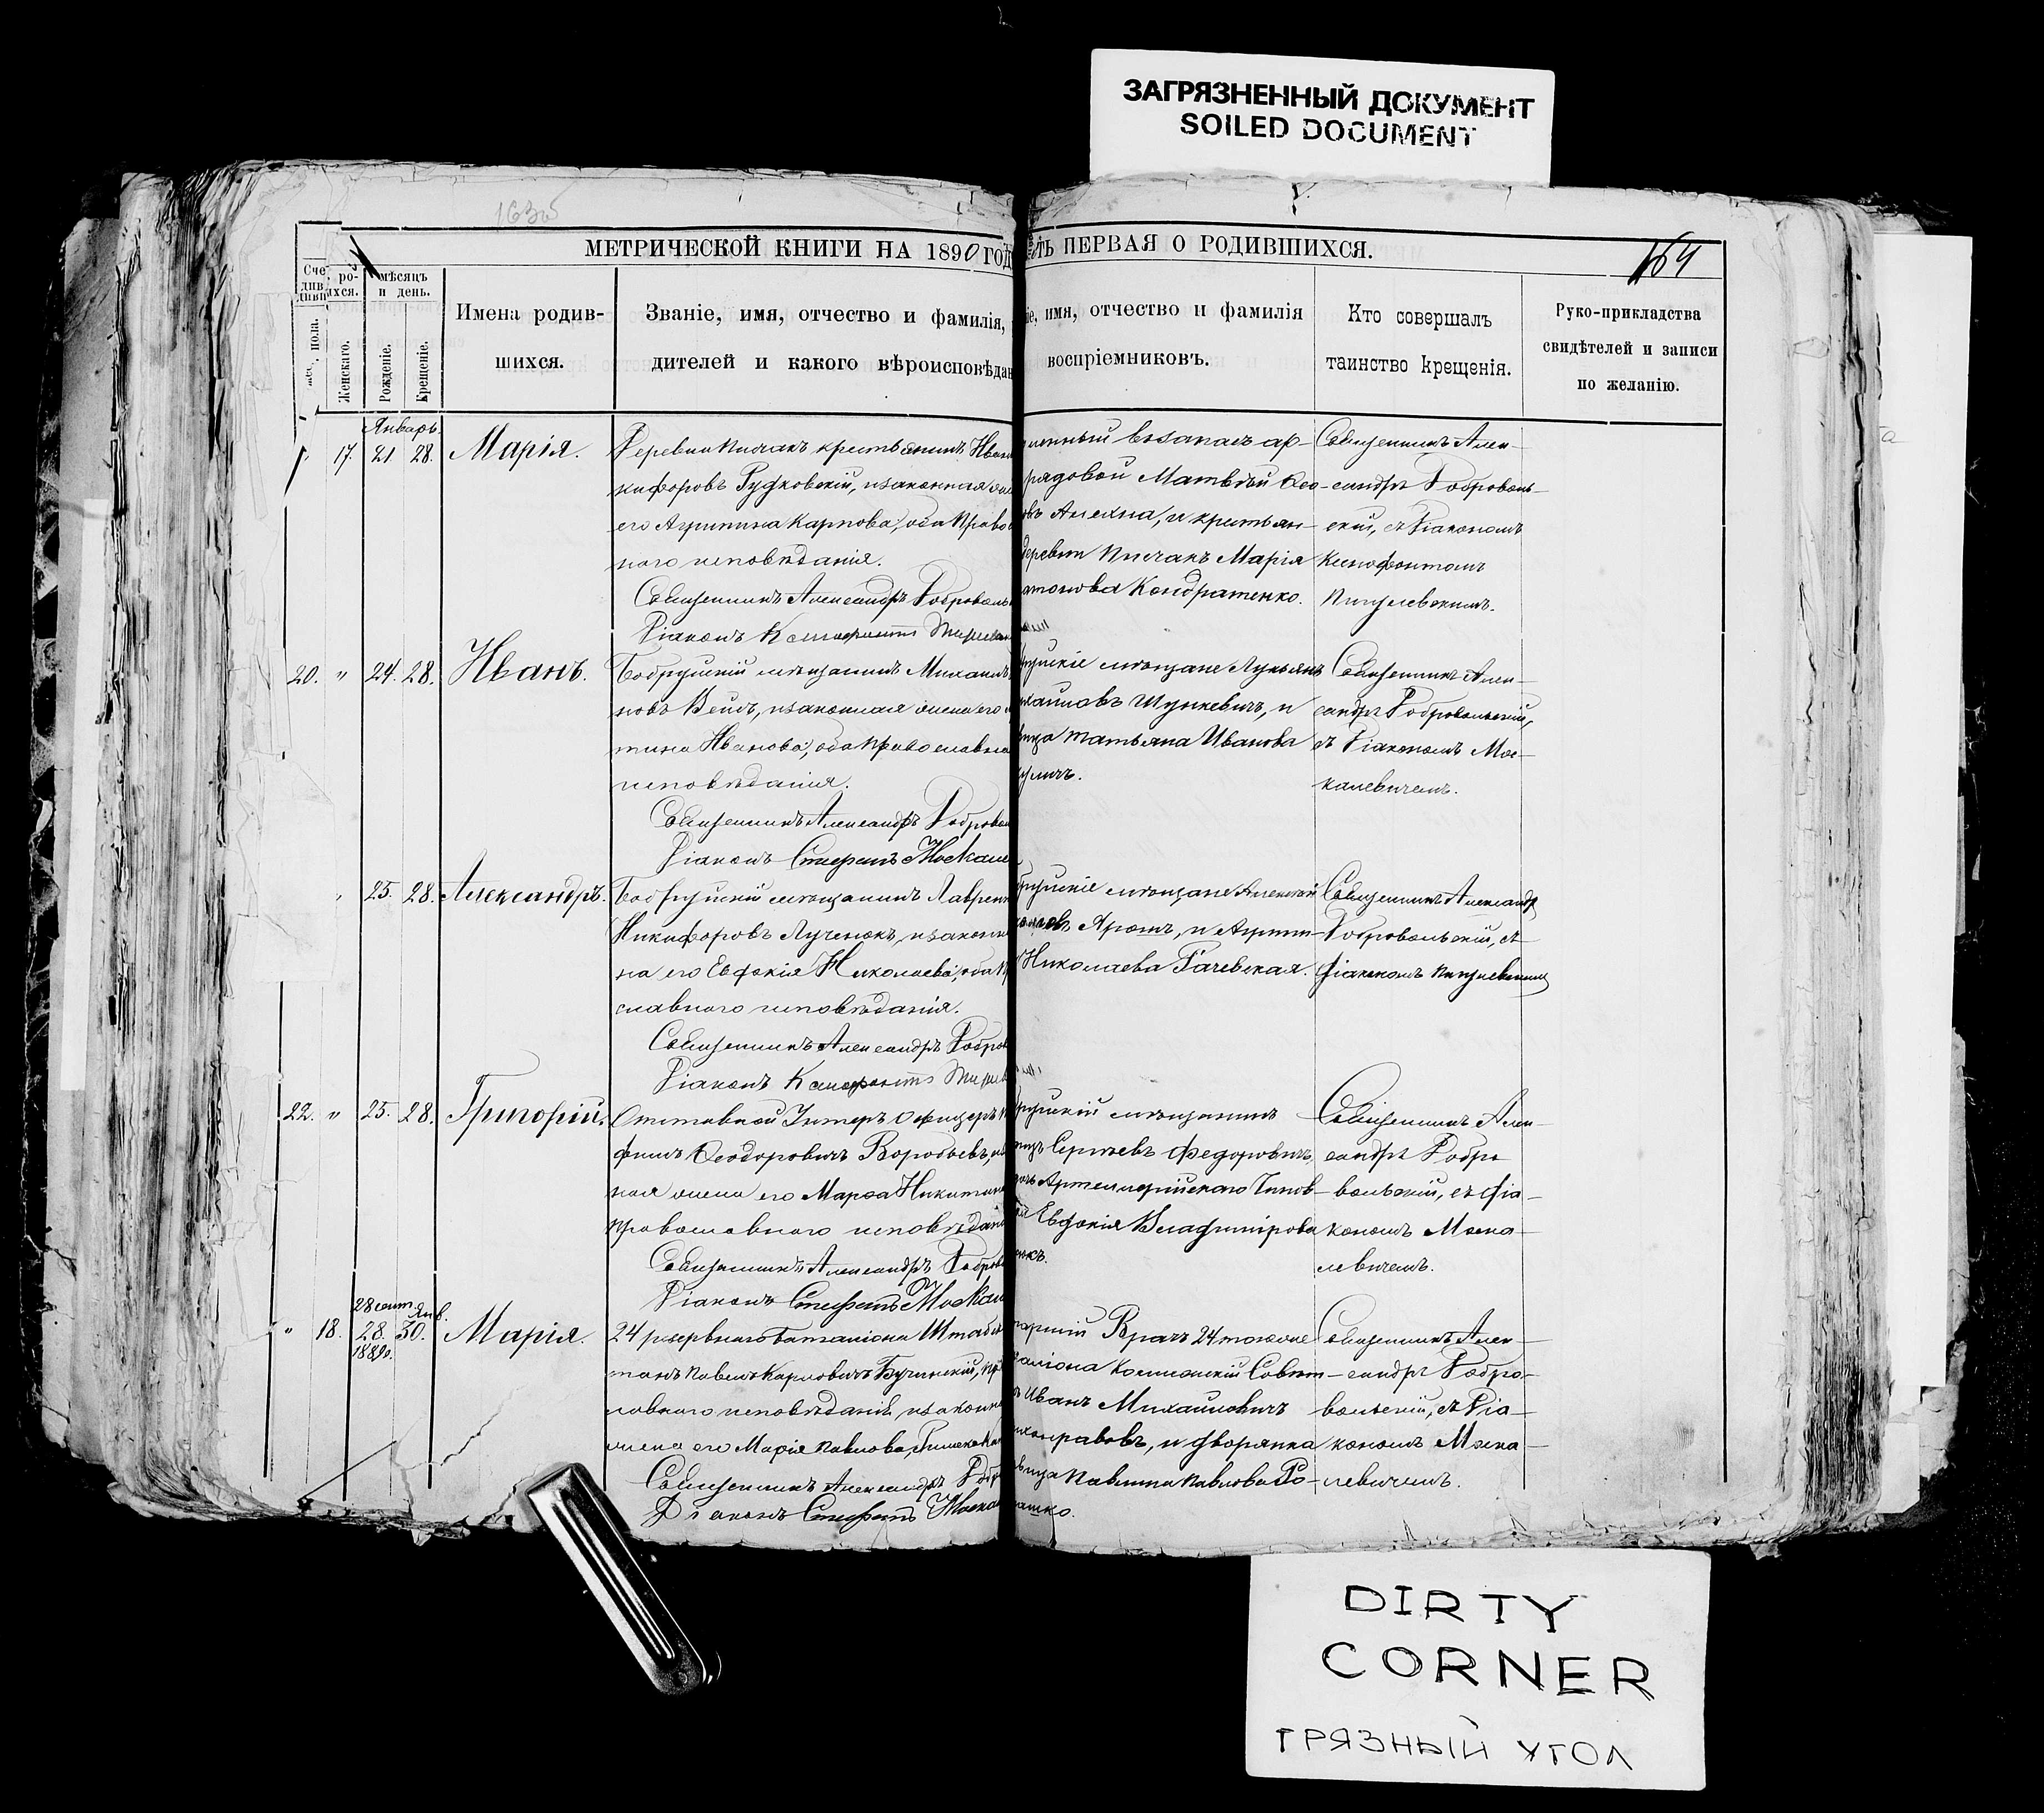 ЗАГРЯЗНЕННЫЙ ДОКУМЕНТ
SOILED DOCUMENT
163об
МЕТРИЧЕСКОЙ КНИГИ НА 1890 ГОД
ТЬ ПЕРВАЯ О РОДИВШИХСЯ.
164
Сче
ро-
див
шихся.
мѣсяцъ
и день.
пола.
Женскаго.
Рожденіе.
Крещеніе.
Имена родив-
шихся.
Званіе, имя, отчество и фамилія,
дителей и какого вѣроисповѣдан
іе, имя, отчество и фамилія
воспріемниковъ.
Кто совершалъ
таинство крещенія.
Руко-прикладства
свидѣтелей и записи
по желанію.
Январь.
17. 21 28. Марія.
Деревни Кисчакъ крестьянинъ Иван
кифоровъ Рудковскій, и законная
его Агрипина Карпова, оба Право
наго исповѣданія.
Священникъ Александръ Доброволь
Діаконъ Ксенофонтъ
рядовой Матвѣй Ѳео-
Алехна, и крестьян-
деревни Кисчакъ Марія
Кондратенко.
Священникъ Алек-
сандръ Доброволь-
скій, съ Діакономъ
Ксенофонтомъ
20. " 24. 28. Иванъ.
Бобруйскій мѣщанинъ Михаилъ
новъ Вейсъ, и законная жена его
тина Иванова, оба православна
исповѣданія.
Священникъ Александръ Доброволь
Діаконъ Стефанъ Москале
руйскіе мѣщане Лукьянъ
хаиловъ Шункевичъ, и
вица Татьяна Иванова
Священникъ Алек-
сандръ Добровольскій,
съ Діакономъ Мос-
калевичемъ.
" 25. 28. Александръ.
Бобруйскій мѣщанинъ Лаврен
Никифоровъ Лученокъ, и законн
на его Евдокія Николаева, оба п
славнаго исповѣданія.
Священникъ Александръ Добров
Діаконъ Ксенофонтъ
бруйскіе мѣщане Алексѣй
Яромъ, и Агрип-
Николаева Гачевская.
Священникъ Александръ
Добровольскій, съ
діакономъ
22. " 25. 28. Григорій.
Отставной Унтеръ Офицеръ
фимъ Ѳеодоровичъ Воробьевъ,
ная жена его Марѳа Никитин
православнаго исповѣдані
Священникъ Александръ Доброво
Діаконъ Стефанъ Москал
руйскій мѣщанинъ
Сергѣевъ Федоровичъ,
Артиллерійскаго Чинов-
Евдокія Владимірова
Священникъ Алек-
сандръ Добро
вольскій, съ діа-
кономъ Моска-
левичемъ.
28 сент. Янв.
" 18. 28. 30. Марія.
1889г.
24 резервнаго баталіона Штабсъ
танъ Павелъ Карловичъ Бучинскій, пр
славнаго исповѣданія, и законн
жена его Марія Павлова,
Священникъ Александръ Добр
Діаконъ Стефанъ Моска
Врачъ 24 того же
таліона Коллежскій Совѣт-
Иванъ Михайловичъ
и дворянка
вица Павлина Павлова Го-
ашко.
Священникъ Алек-
сандръ Добро-
вольскій, съ Діа-
кономъ Моска-
левичемъ.
DIRTY
CORNER
ГРЯЗНЫЙ УГОЛ